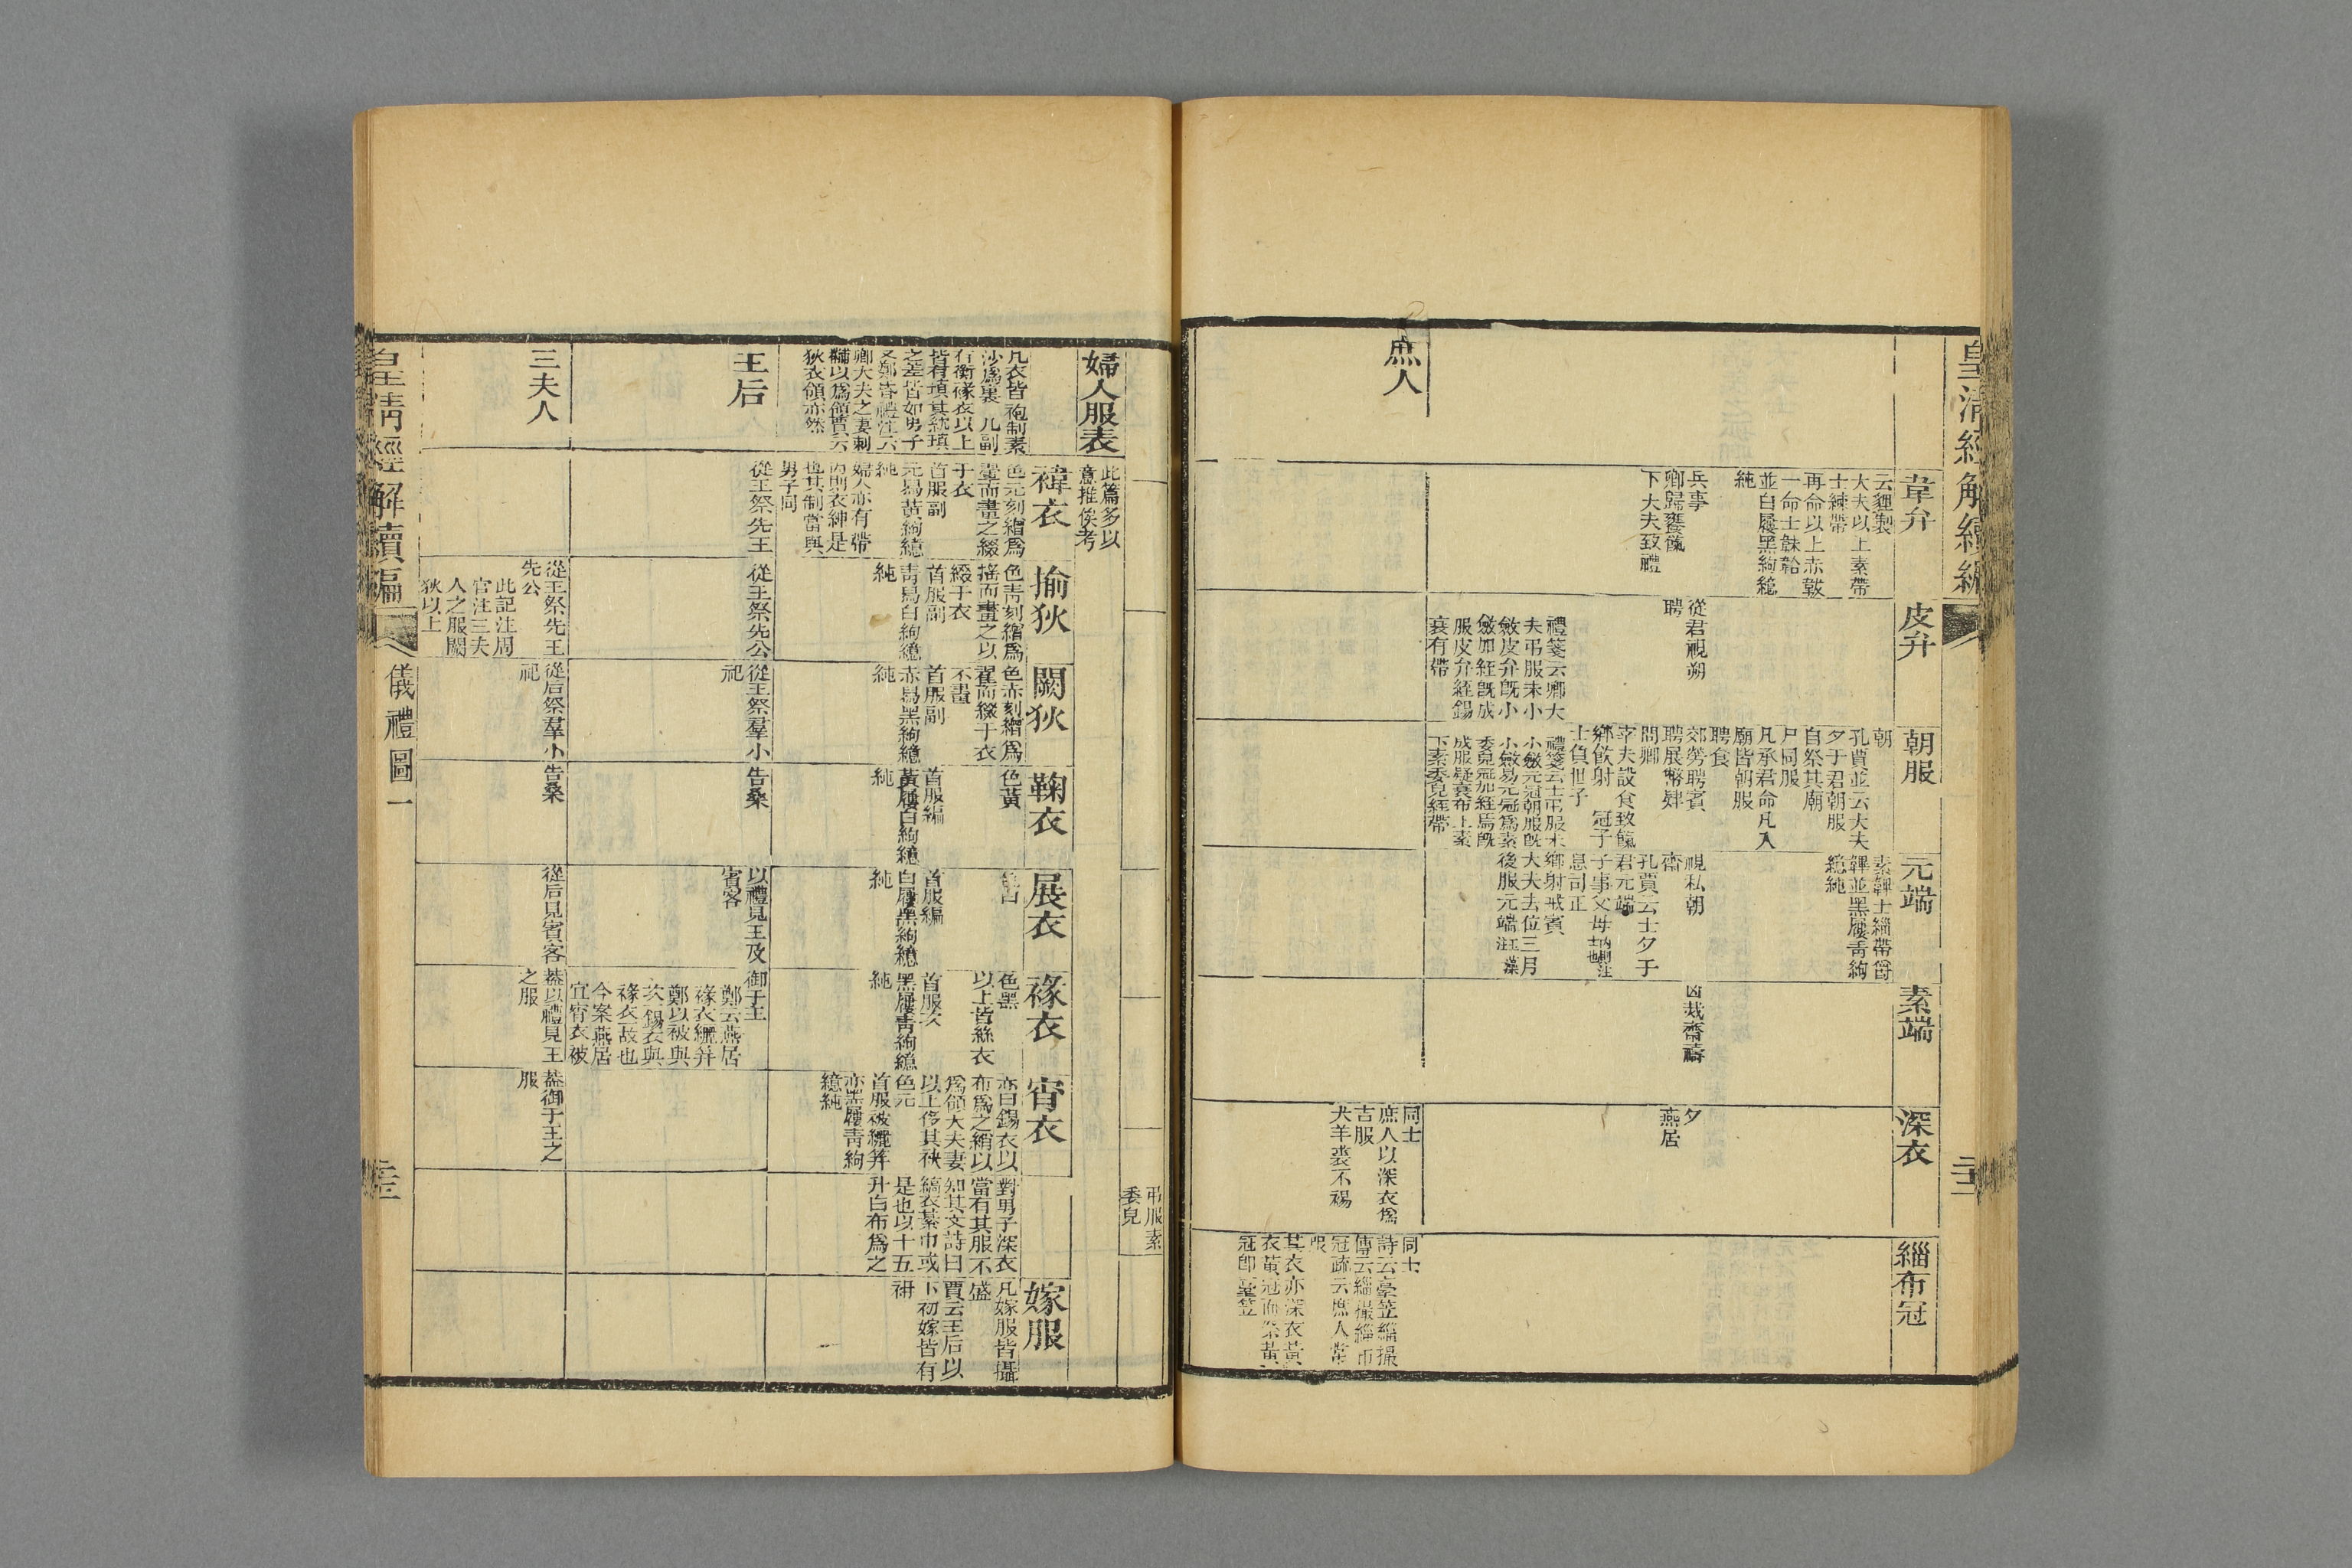 皇清經解續編
韋弁
皮弁
朝服
元端
素端
深衣
緇布冠
云貍製
大夫以上素帶
士練帶
再命以上赤韍
一命士韎韐
並白屨黑絇繶
純
朝
孔賈並云大夫
夕于君朝服
自祭其廟
尸同服
凡承君命凡入
廟皆朝服
聘食
素韠士緇帶爵
韠並黑屨靑絇
繶純
兵事
卿歸饔餼
下大夫致禮
從君視朔
聘
郊勞聘賓
聘展幣肄
問卿
宰夫設食致餼
鄉飮射 冠子
士負世子
視私朝
齊
孔賈云士夕于
君元端
子事父母內則注士也
息司正
凶烖齊禱
夕
燕居
禮箋云卿大
夫弔服未小
斂皮弁旣小
斂加絰旣成
服皮弁絰錫
衰有帶
禮箋云士弔服未
小斂元冠朝服旣
小斂易元冠爲素
委皃冠加絰焉旣
成服疑衰布上素
下素委皃絰帶
鄉射戒賓
大夫去位三月
後服元端玉藻注
庶人
同士
庶人以深衣爲
吉服
犬羊裘不裼
同士
詩云臺笠緇撮
傳云緇撮緇布
冠疏云庶人常
服
其衣亦深衣黃
衣黃冠而祭黃
冠卽臺笠
弔服素
委皃
婦人服表
此篇多以
意推俟考
褘衣
揄狄
闕狄
鞠衣
展衣
褖衣
宵衣
嫁服
凡衣皆袍制素
沙爲裏 凡副
有衡褖衣以上
皆有瑱其紞瑱
之差皆如男子
又鄭昏禮注云
卿大夫之妻刺
黼以爲領賈云
狄衣領亦然
色元刻繒爲
翬而畫之綴
于衣
首服副
元舄黃絇繶
純
婦人亦有帶
內則衣紳是
也其制當與
男子同
色靑刻繒爲
搖而畫之以
綴于衣
首服副
靑舄白絇繶
純
色赤刻繒爲
翟而綴于衣
不畫
首服副
赤舄黑絇繶
純
色黃
首服編
黃屨白絇繶
純
色白
首服編
白屨黑絇繶
純
色黑
以上皆絲衣
首服次
黑屨靑絇繶
純
亦曰錫衣以
布爲之綃以
爲領大夫妻
以上侈其袂
色元
首服被纚筓
亦黑屨靑絇
繶純
對男子深衣
當有其服不
知其文詩曰
縞衣綦巾或
是也以十五
升白布爲之
凡嫁服皆攝
盛
賈云王后以
下初嫁皆有
袡
王后
從王祭先王
從王祭先公
從王祭羣小
祀
告桑
以禮見王及
賓客
御于王
鄭云燕居
褖衣纚筓
鄭以被與
次錫衣與
褖衣一故也
今案燕居
宜宵衣被
三夫人
從王祭先王
先公
此記注周
官注三夫
人之服闕
狄以上
從后祭羣小
祀
告桑
從后見賓客
葢以禮見王
之服
葢御于王之
服
皇清經解續編
儀禮圖一